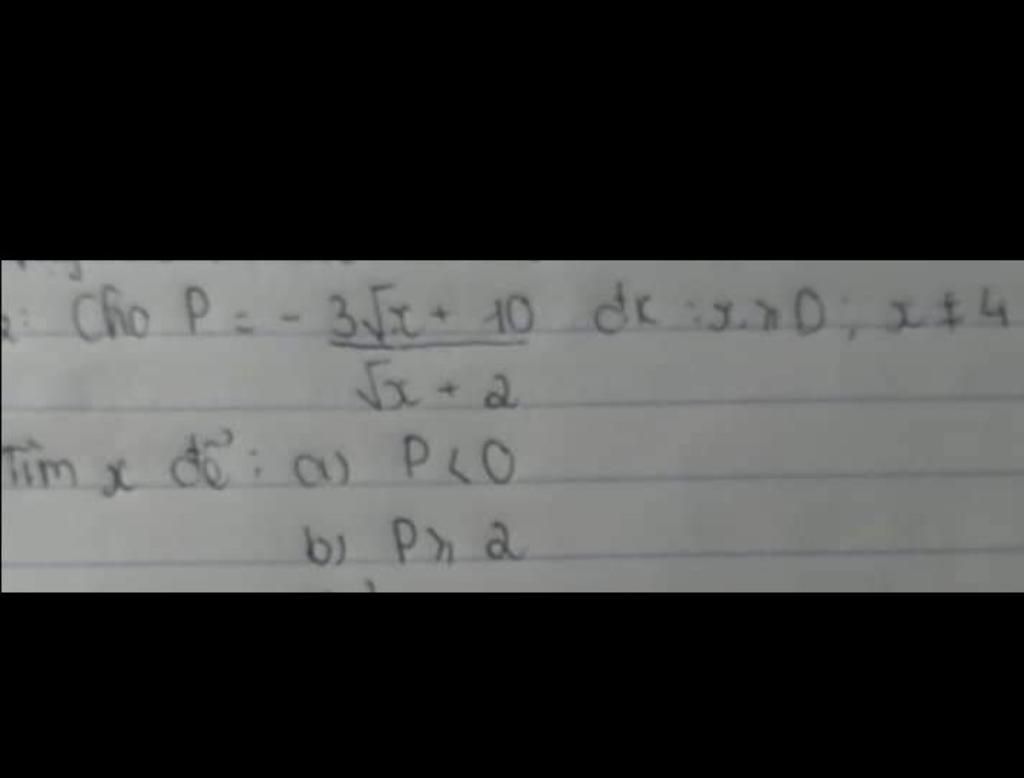 2: Cho P = - 3√x + 10 đk : x ≥ 0 ; x ≠ 4
√x + 2
Tìm x để : a) P < 0
b) P ≥ 2